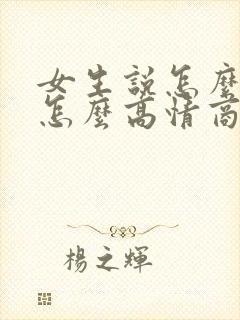 女生説怎麼
怎麼高情商
楊之輝